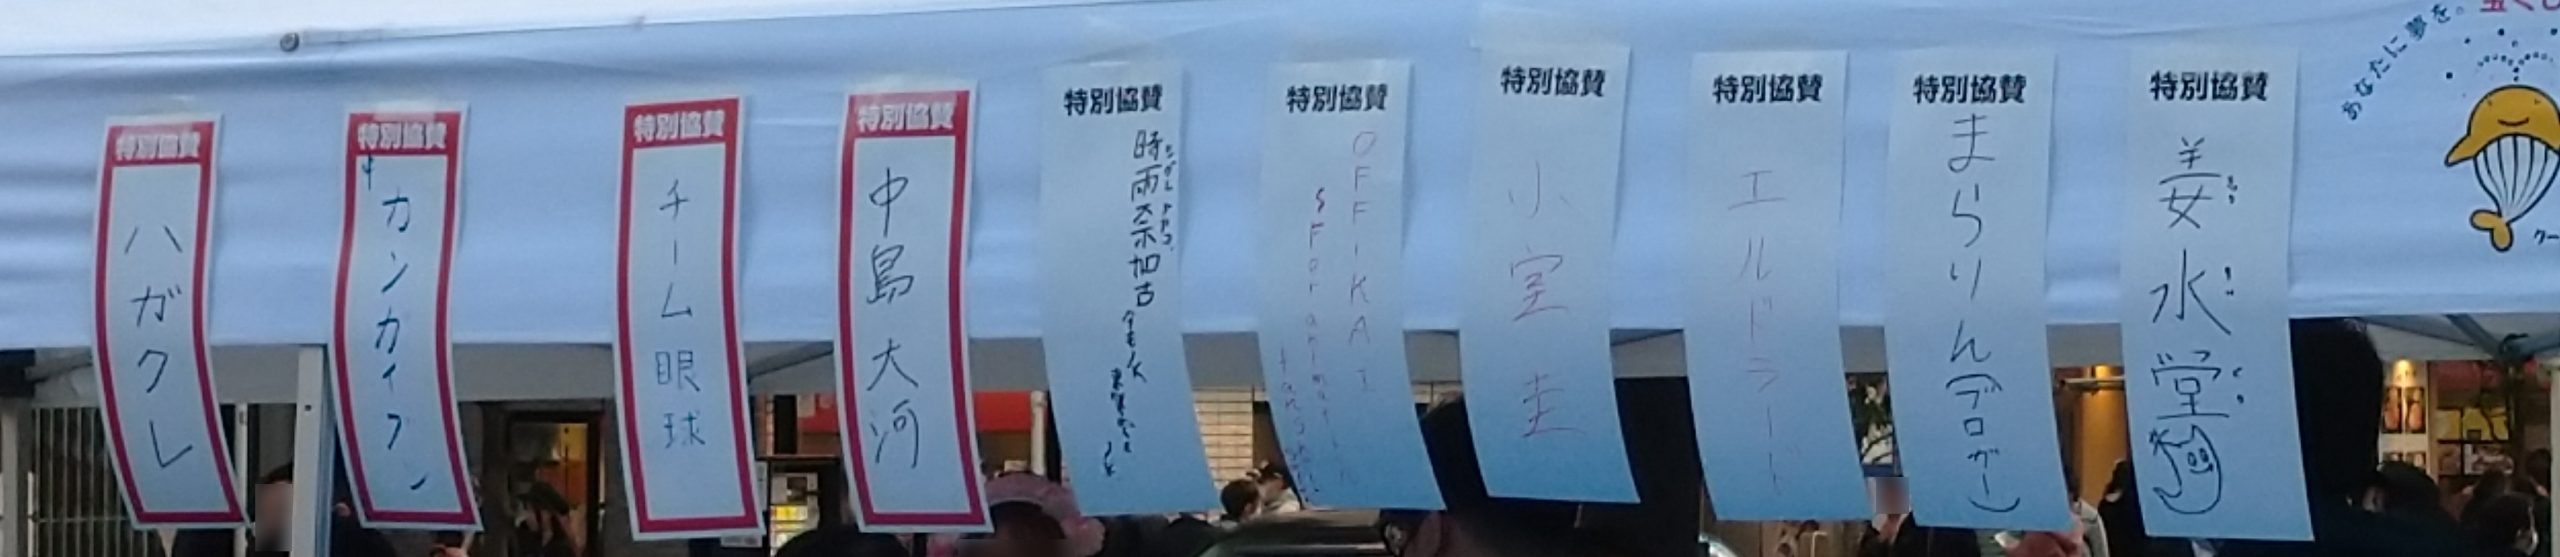 特別協賛
ハガクレ
特別協賛
カンガイブン
特別協賛
チーム眼球
特別協賛
中島大河
特別協賛
時雨奈加古
特別協賛
OFFIKAI
特別協賛
小室圭
特別協賛
エルドラード
特別協賛
まらりん(ブロガー)
特別協賛
姜水堂
あなたに夢を。
クー